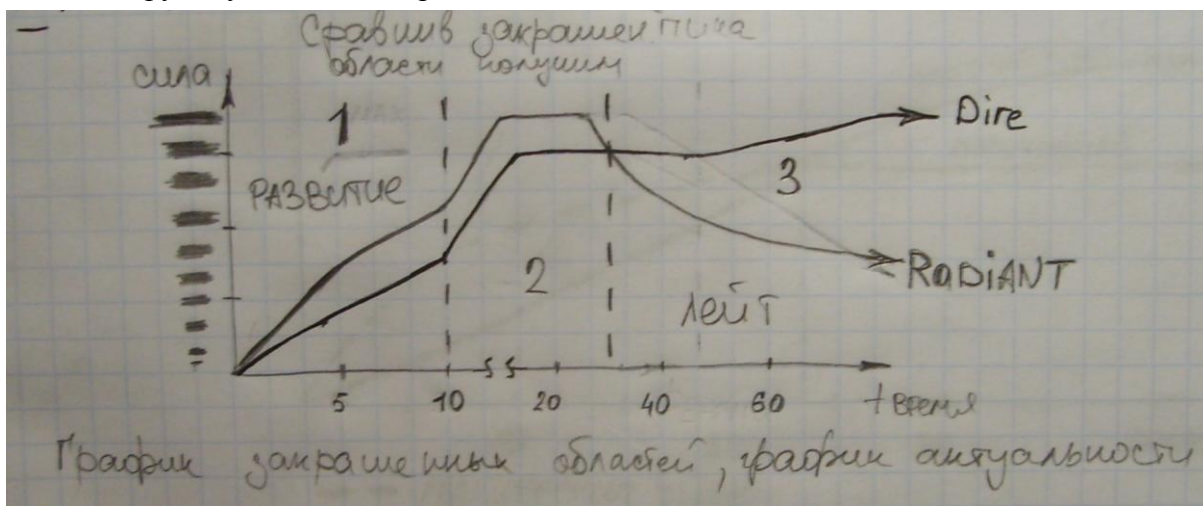 Сравнив закрашен пика
области получим
сила
1
РАЗВИТИЕ
2
3
Dire
RaDiANT
лейт
5 10 20 40 60 t время
График закрашенных областей, график актуальности